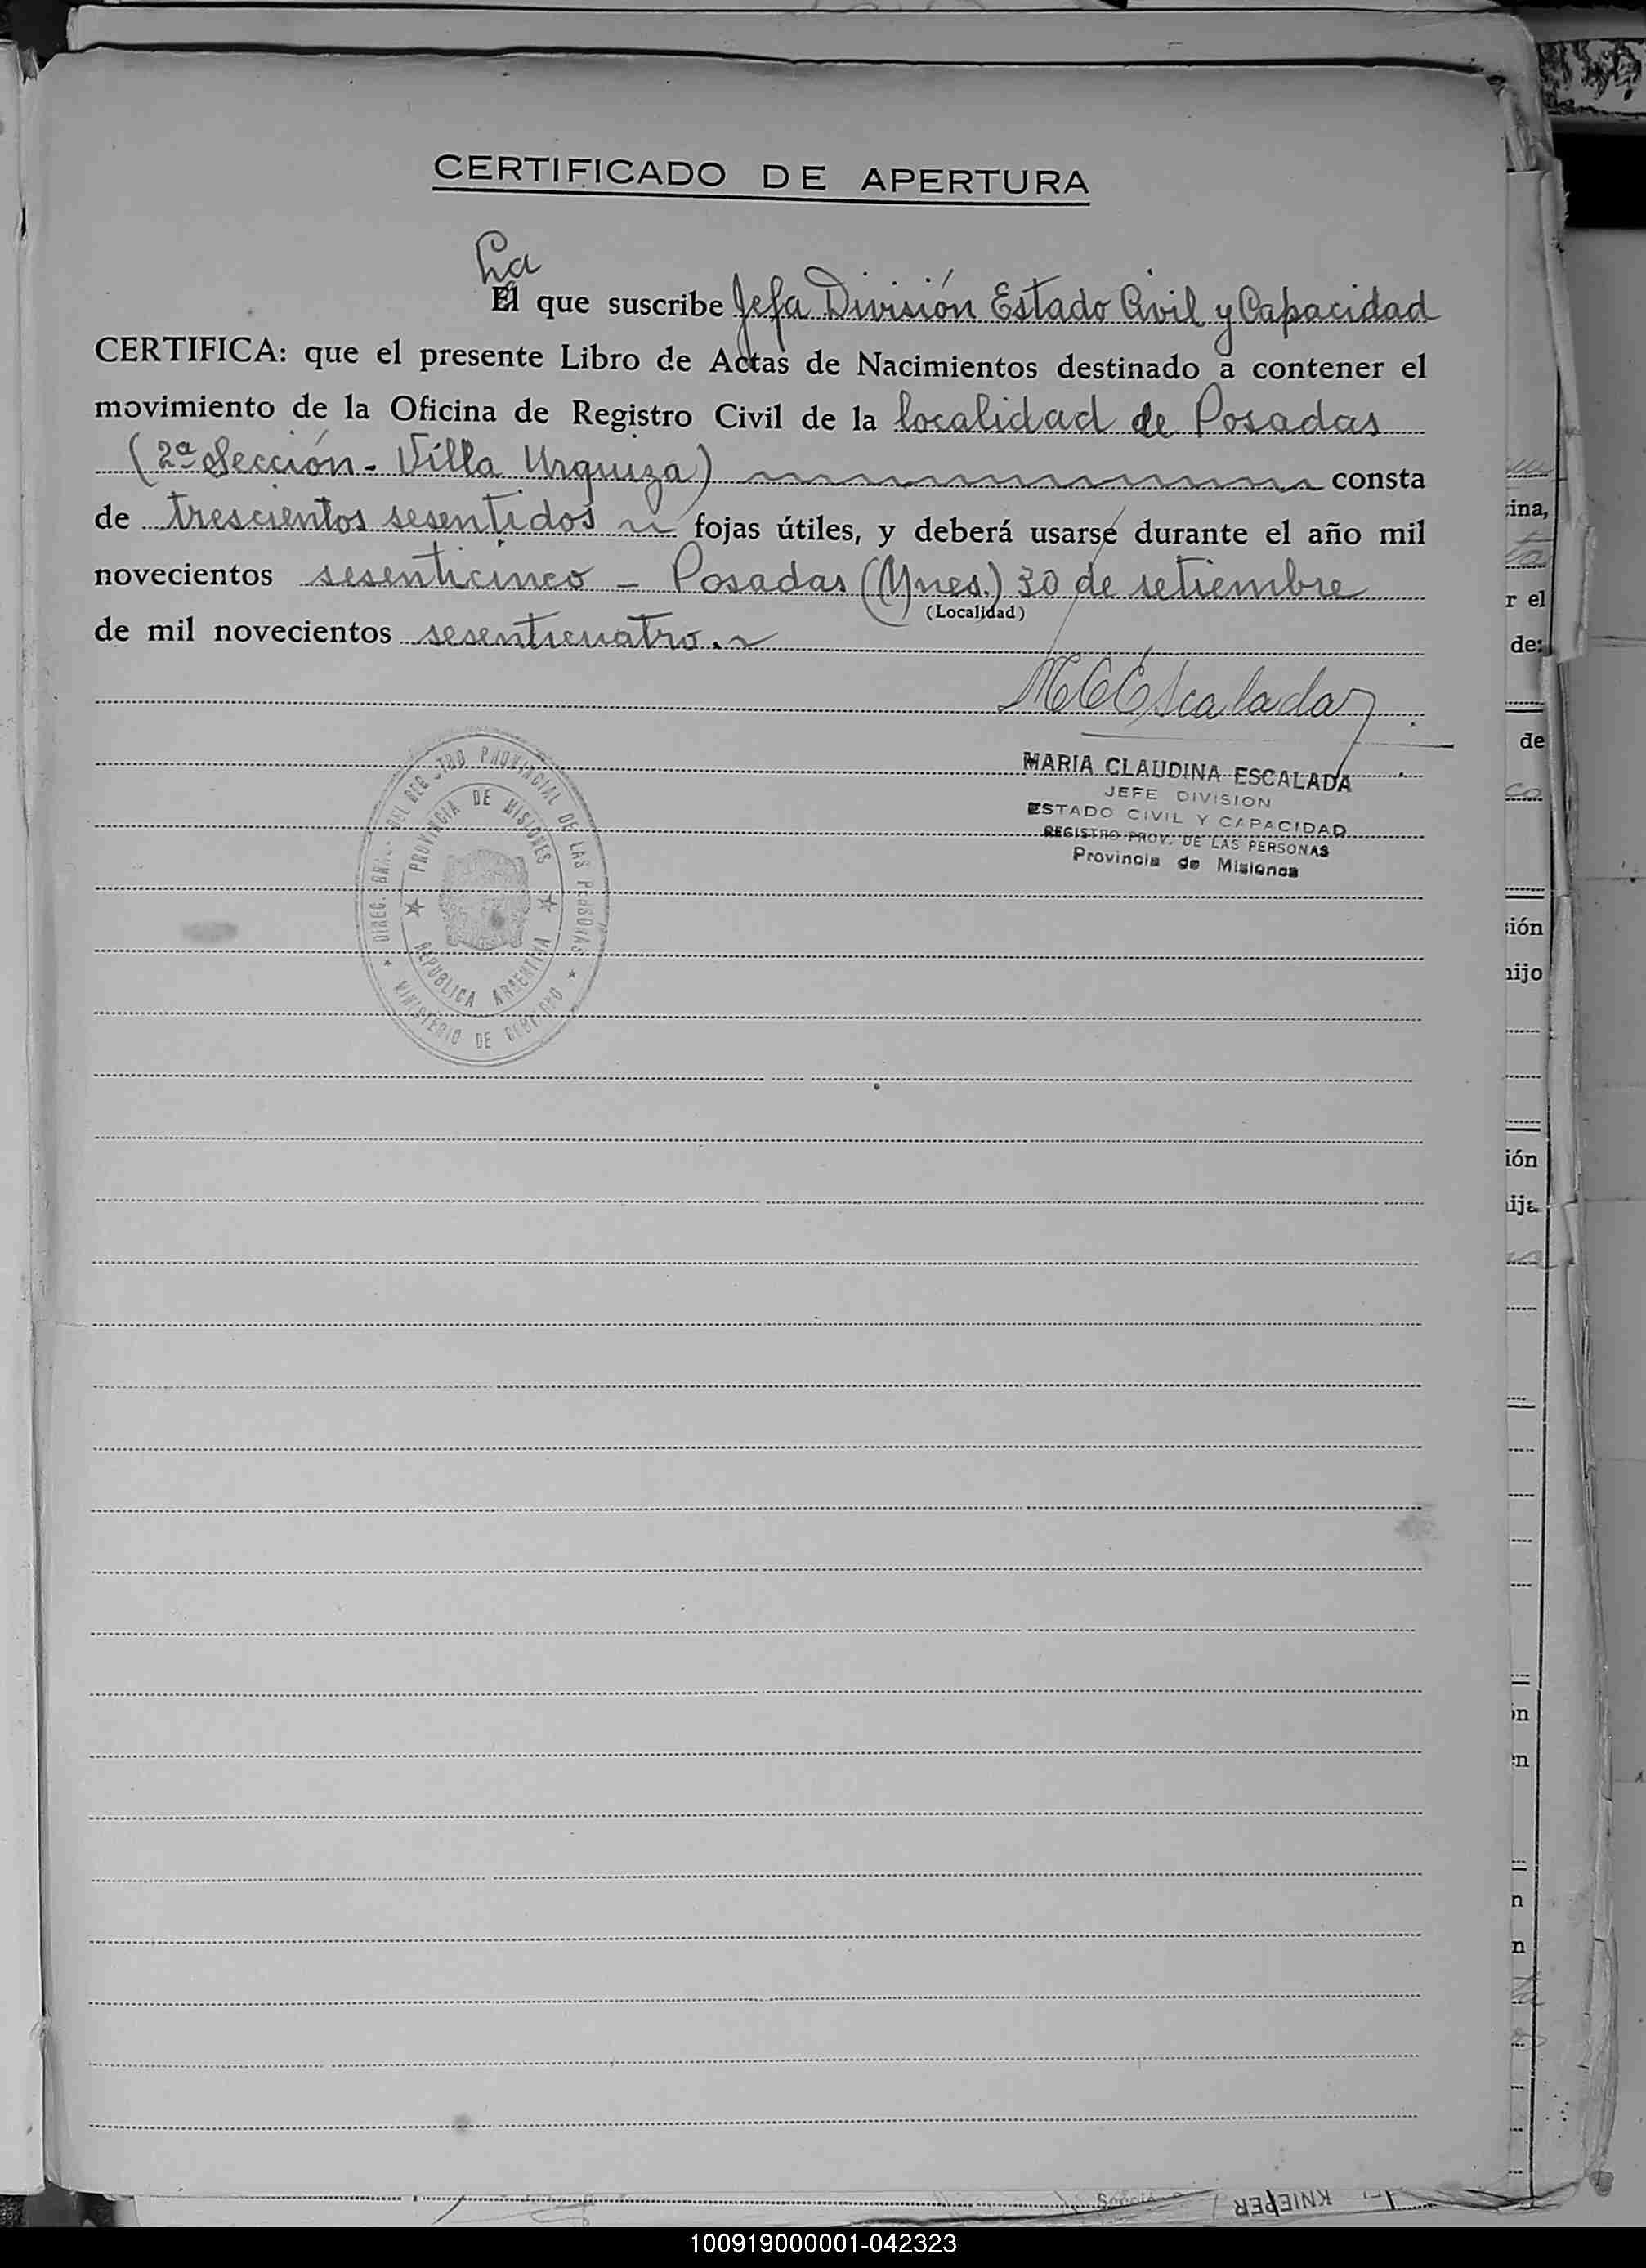 CERTIFICADO DE APERTURA
La
El que suscribe Jefa División Estado Civil y Capacidad
CERTIFICA: que el presente Libro de Actas de Nacimientos destinado a contener el
movimiento de la Oficina de Registro Civil de la localidad de Posadas
(2ª Sección - Villa Urquiza) consta
de trescientos sesentidos fojas útiles, y deberá usarse durante el año mil
novecientos sesenticinco - Posadas (Mnes.) 30 de setiembre
(Localidad)
de mil novecientos sesenticuatro.
M C Escalada
MARIA CLAUDINA ESCALADA
JEFE DIVISION
ESTADO CIVIL Y CAPACIDAD
REGISTRO PROV. DE LAS PERSONAS
Provincia de Misiones
DIREC. GRAL. DEL REGISTRO PROVINCIAL DE LAS PERSONAS
MINISTERIO DE GOBIERNO
PROVINCIA DE MISIONES
REPUBLICA ARGENTINA
ina,
r el
de:
de
ión
hijo
ión
ija
ón
en
n
n
KNIEPER
100919000001-042323